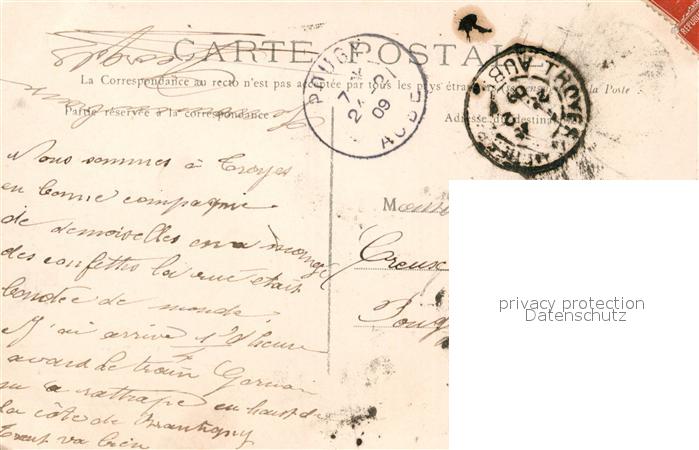 CARTE POSTALE
La Correspondance au recto n'est pas acceptée par tous les pays étrangers la Poste
Partie réservée à la correspondance
Adresse du destinataire
POUGY
7
21
09
AUBE
TROYES
AUBE
Nous sommes à Troyes
en bonne compagnie
de demoiselles on a mangé
des confettis la rue était
bondée de monde
J'ai arrivé 1/2 heure
avant le train
m a rattrapé en haut de
la côte de Brantigny
tout va bien
M
Creux
Poug
privacy protection
Datenschutz